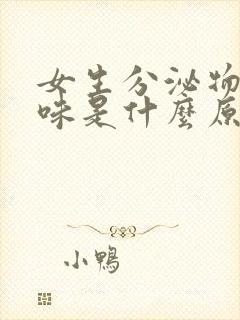 女生分泌物
味是什麼原
小鴨